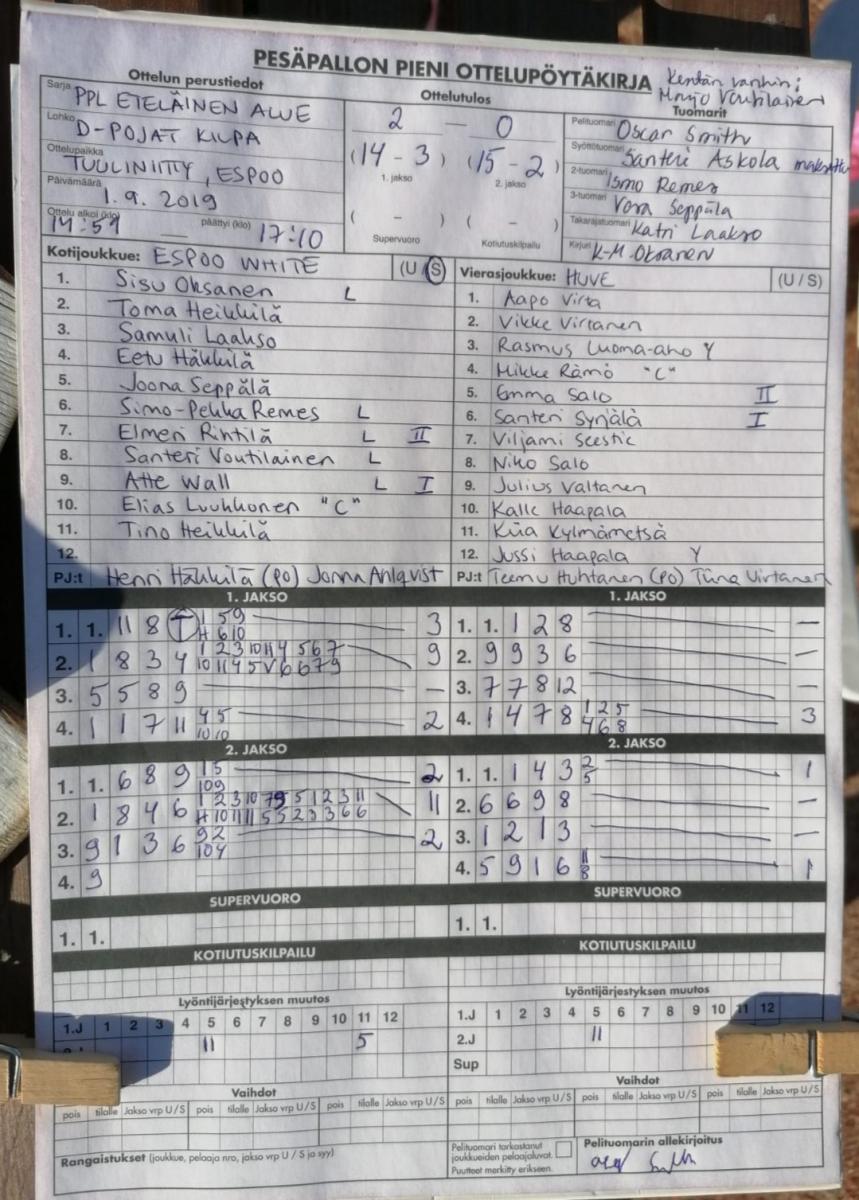 PESÄPALLON PIENI OTTELUPÖYTÄKIRJA
Kentän vanhin:
Voutilainen
Ottelun perustiedot
Sarja PPL ETELÄINEN ALUE
Lohko D-POJAT KILPA
Ottelupaikka TUULINIITTY, ESPOO
Päivämäärä 1.9.2019
Ottelu alkoi (klo) 14:59 päättyi (klo) 17:10
Ottelutulos
2 - 0
(14 - 3) (15 - 2)
1. jakso 2. jakso
( - ) ( - )
Supervuoro Kotiutuskilpailu
Tuomarit
Pelituomari Oscar Smith
Syöttötuomari Santeri Askola
2-tuomari Ismo Remes
3-tuomari Vesa Seppälä
Takarajatuomari Katri Laakso
Kirjuri K-M. Oksanen
Kotijoukkue: ESPOO WHITE (U/S)
1. Sisu Oksanen L
2. Toma Heikkilä
3. Samuli Laakso
4. Eetu Häkkilä
5. Joona Seppälä
6. Simo-Pekka Remes L
7. Elmeri Rintilä L II
8. Santeri Voutilainen L
9. Atte Wall L I
10. Elias Luukkonen "C"
11. Tino Heikkilä
12.
PJ:t Henri Häkkilä (PO) Jonna Ahlqvist
Vierasjoukkue: HUVE (U/S)
1. Aapo Virta
2. Vikke Virtanen
3. Rasmus Luoma-aho Y
4. Mikke Rämö "C"
5. Emma Salo II
6. Santeri Syrjälä I
7. Viljami Seestie
8. Niko Salo
9. Julius Valtanen
10. Kalle Haapala
11. Kiia Kylmämetsä
12. Jussi Haapala Y
PJ:t Teemu Huhtanen (PO) Tiina Virtanen
1. JAKSO
1. 1. 11 8 T 1 59 3
H 6 10
2. 1 8 3 4 1 2 3 10 11 4 5 6 7 9
10 11 4 5 V 6 6 7 9
3. 5 5 8 9 -
4. 1 1 7 11 4 5 2
10 10
1. JAKSO
1. 1. 1 2 8 -
2. 9 9 3 6 -
3. 7 7 8 12 -
4. 1 4 7 8 1 2 5 3
4 6 8
2. JAKSO
1. 1. 6 8 9 1 5 2
10 9
2. 1 8 4 6 1 2 3 10 5 1 2 3 11 11
H 10 11 11 5 5 2 3 3 6 6
3. 9 1 3 6 9 2 2
10 4
4. 9
2. JAKSO
1. 1. 1 4 3 2 1
5
2. 6 6 9 8 -
3. 1 2 1 3 -
4. 5 9 1 6 11 1
8
SUPERVUORO
1. 1.
SUPERVUORO
1. 1.
KOTIUTUSKILPAILU
KOTIUTUSKILPAILU
Lyöntijärjestyksen muutos
1.J 1 2 3 4 5 6 7 8 9 10 11 12
11 5
Lyöntijärjestyksen muutos
1.J 1 2 3 4 5 6 7 8 9 10 11 12
2.J 11
Sup
Vaihdot
pois tilalle Jakso vrp U/S pois tilalle Jakso vrp U/S pois tilalle Jakso vrp U/S
Vaihdot
pois tilalle Jakso vrp U/S pois tilalle Jakso vrp U/S pois tilalle Jakso vrp U/S
Rangaistukset (joukkue, pelaaja nro, jakso vrp U / S ja syy)
Pelituomari tarkastanut
joukkueiden pelaajaluvat.
Puutteet merkitty erikseen.
Pelituomarin allekirjoitus